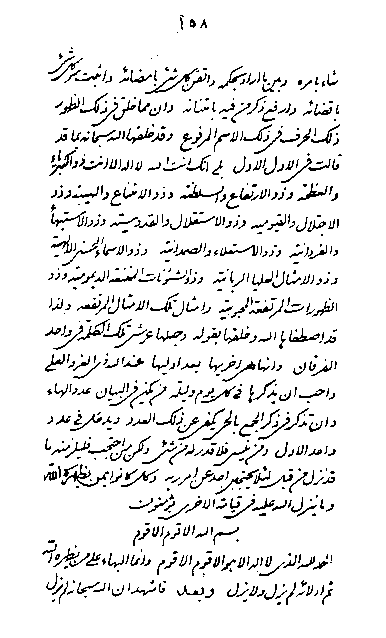 ١٥٨
شاء بامره وبين ما اراد بحكمه واتقن كل شئ بامضائه واثبت كل شئ
باقضائه وارفع ذكر من فيه باثباته وان مما خلق فى ذلك الظهور
ذلك الحرف فى ذلك الاسم المرفوع وقد خلقها الله سبحانه بما قد
قالت فى الاول الاول بلى انك انت الله لا اله الا انت ذو الكبرياء
والعظمة وذو الارتفاع والسلطنة وذو الامتناع والهيمنة وذو
الاجتلال والقيومية وذو الاستقلال والقدوسية وذو الاستبهاء
والفردانية وذو الاستعلاء والصمدانية وذو الاسماء الحسنى الالهية
وذو الامثال العليا الربانية وذو الشئونات الممتنعة الديمومية وذو
الظهورات المرتفعة المحبوبية وامثال تلك الامثال المرتفعة ولذا
قد اصطفاها الله وخلقها بقوله وجعلها عرش تلك الكلمة فى واحد
الفرقان وانها هى اخرها بعد اوليها عند الله ذى العز والعلى
واحب ان يذكرها فى كل يوم وليلة من يكن فى البيان عدد الهاء
وان تذكر فى ذكر الجمع بالحى يكفى عن ذلك العدد ويدخل فى عدد
واحد الاول ومن نسى فلا قدر له من شئ ولكن من احتجب فليلزمنه ما
قد نزل من قبل لئلا يحتجبن احد عن امر ربه وكل كانوا بمن يظهره الله
وما ينزل الله عليه فى قيامة الاخرى يؤمنون
بسم الله الاقوم الاقوم
الحمد لله الذى لا اله الا هو الاقوم الاقوم وانما البهاء على من يظهره الله
ثم ادلائه لم يزل ولا يزال وبعد فاشهد ان الله سبحانه لم يزل